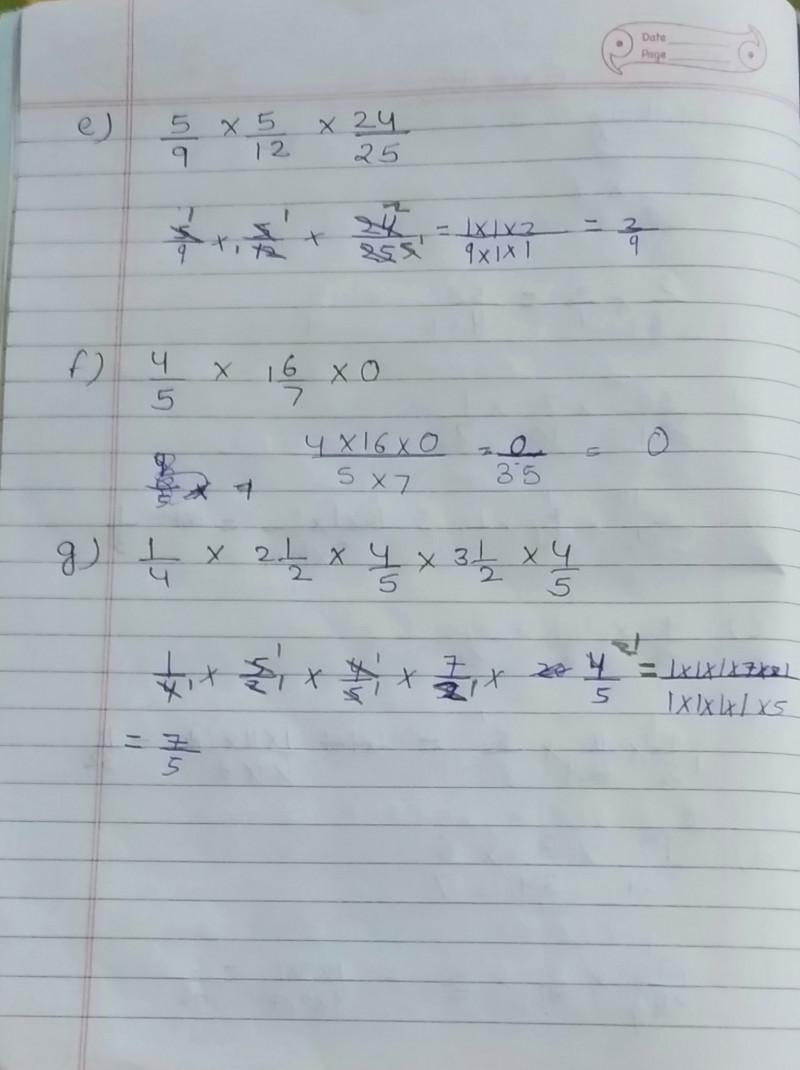 Date
Page
e) 5/9 × 5/12 × 24/25
5/9 × 5/12 × 24/25 = 1×1×2/9×1×1 = 2/9
f) 4/5 × 1 6/7 × 0
4×16×0/5×7 = 0/35 = 0
g) 1/4 × 2 1/2 × 4/5 × 3 1/2 × 4/5
1/4 × 5/2 × 4/5 × 7/2 × 4/5 = 1×1×1×7×1/1×1×1×1×5
= 7/5